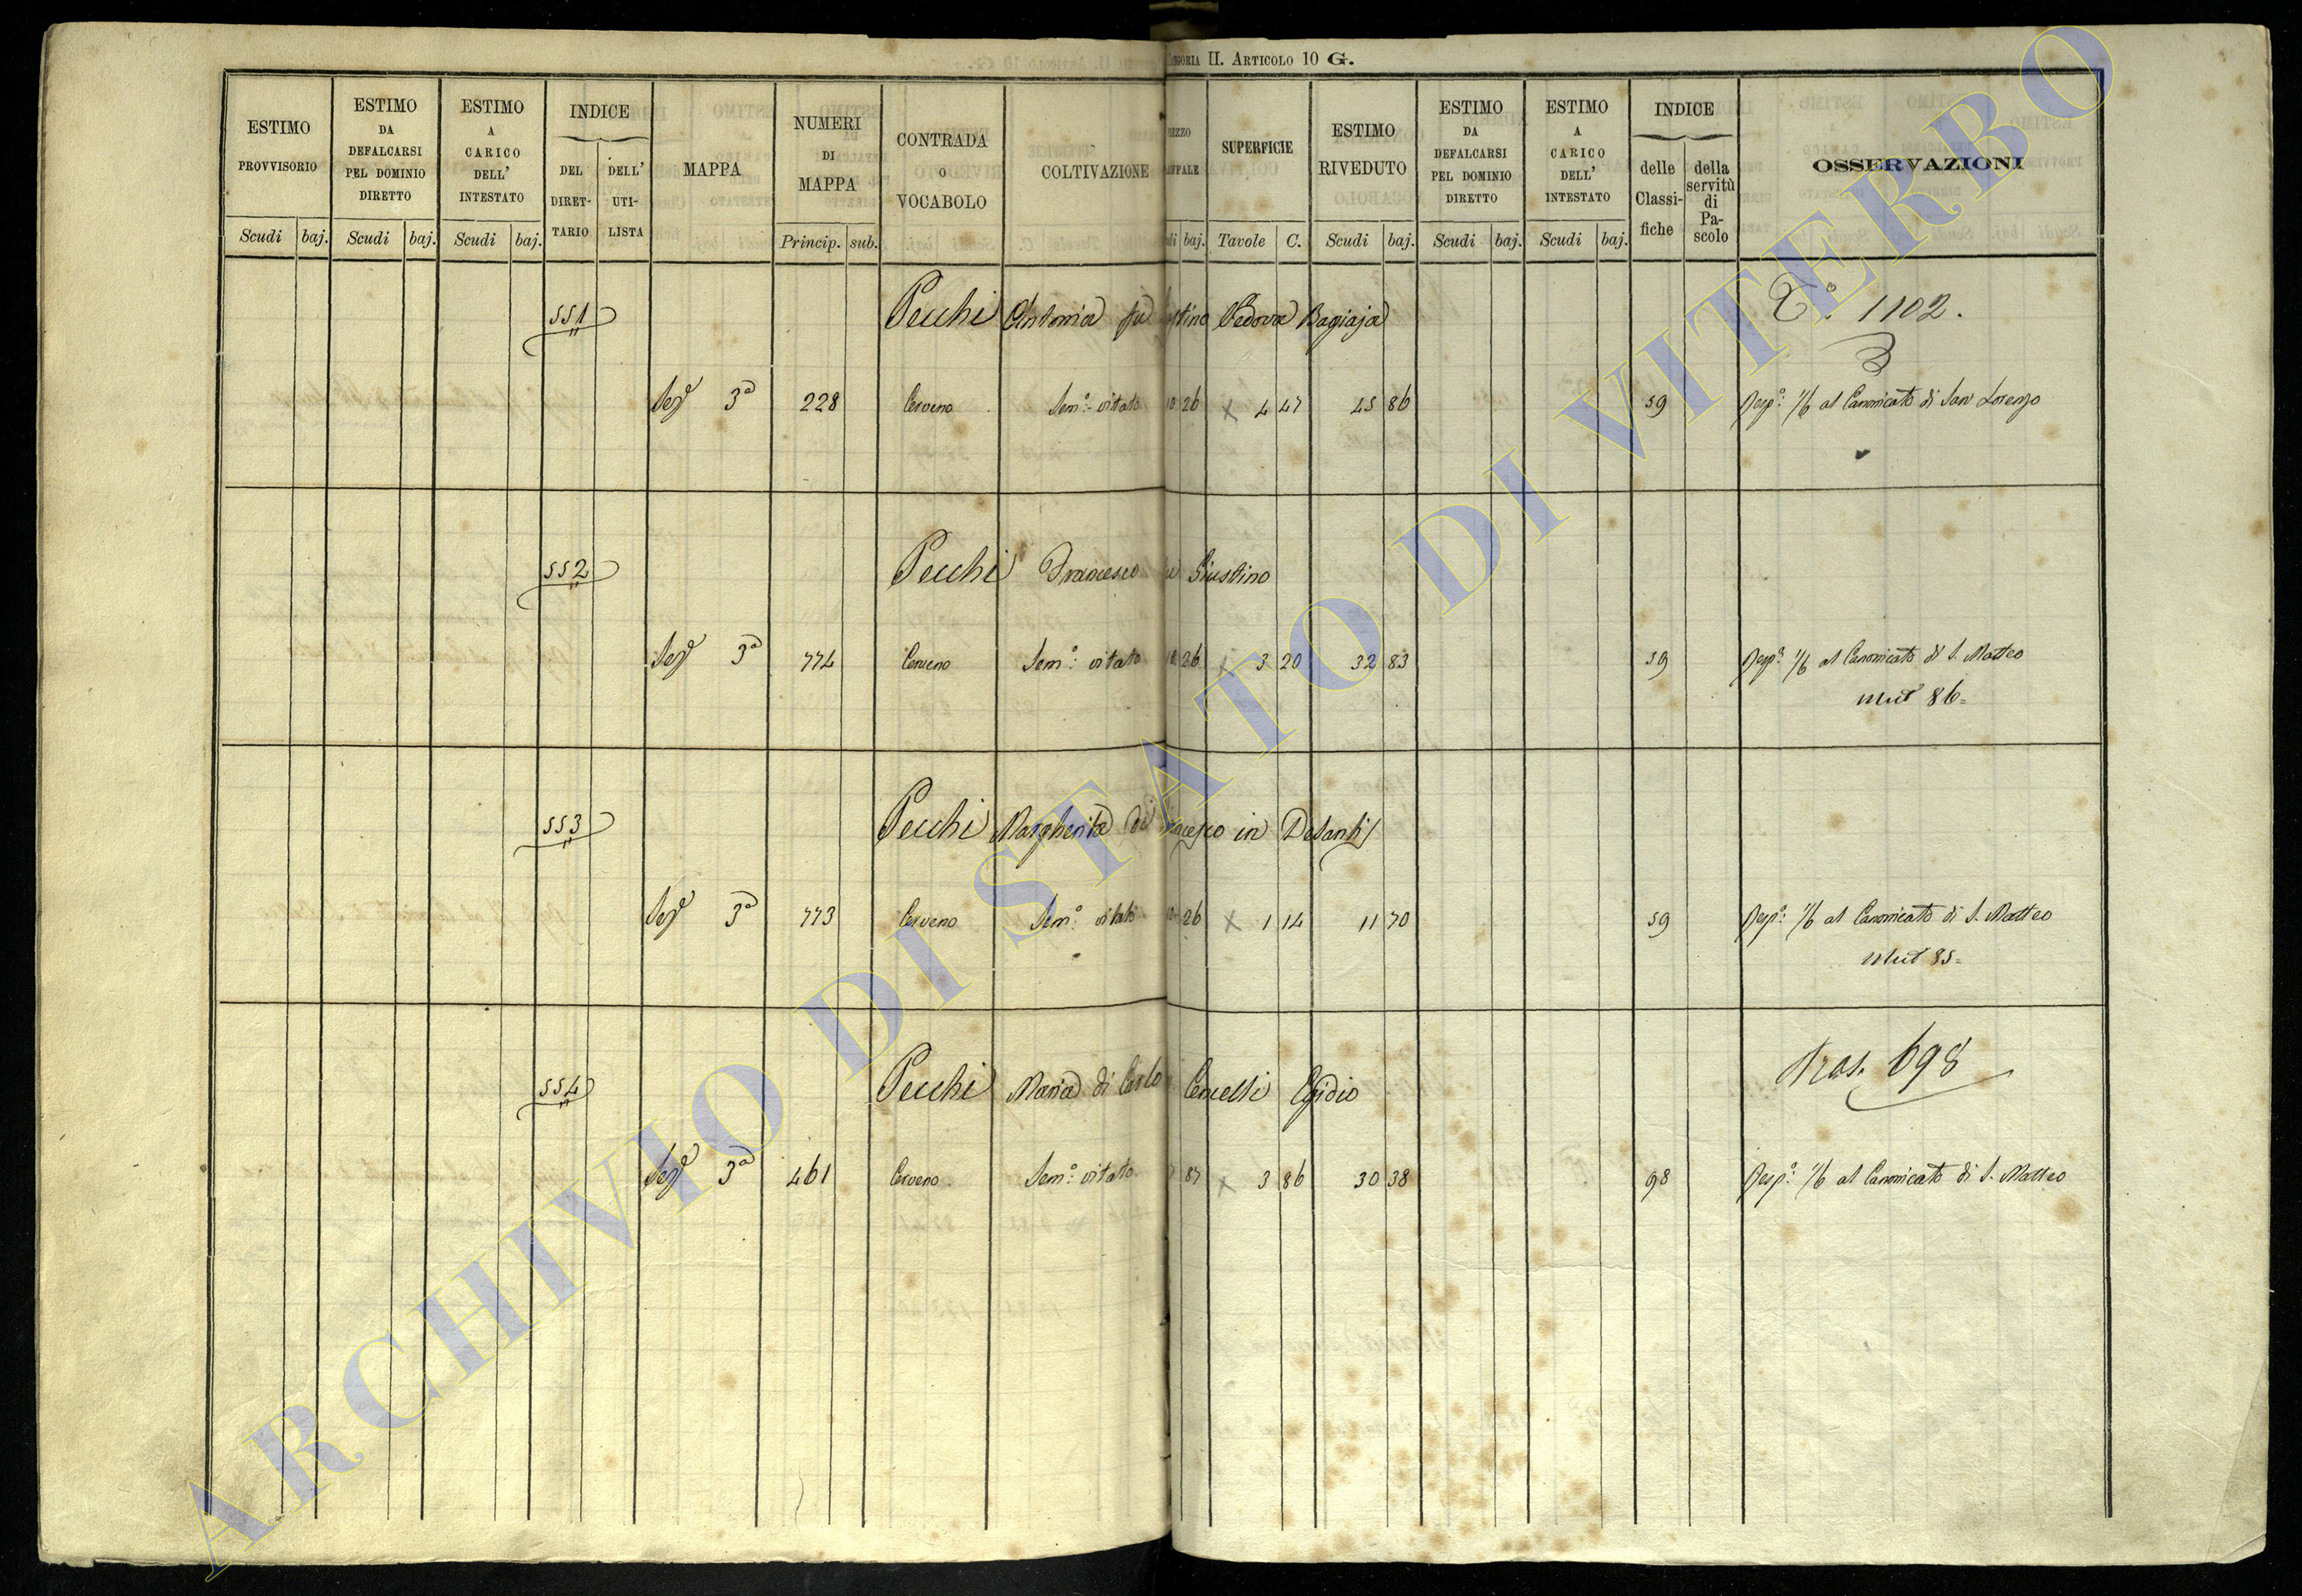 II. Articolo 10 G.
ESTIMO PROVVISORIO
ESTIMO DA DEFALCARSI PEL DOMINIO DIRETTO
ESTIMO A CARICO DELL' INTESTATO
INDICE
DEL DIRET-TARIO
DELL' UTI-LISTA
MAPPA
NUMERI DI MAPPA
CONTRADA O VOCABOLO
COLTIVAZIONE
SUPERFICIE
ESTIMO RIVEDUTO
ESTIMO DA DEFALCARSI PEL DOMINIO DIRETTO
ESTIMO A CARICO DELL' INTESTATO
INDICE
delle Classi-fiche
della servitù di Pa-scolo
OSSERVAZIONI
Scudi baj. Scudi baj. Scudi baj. Princip. sub. baj. Tavole C. Scudi baj. Scudi baj. Scudi baj.
551 Pecchi Antonia Vedova Bagiaja 1102.
3a 228 Cerveno Semo: vitato 10 26 4 47 45 86 59 Respo: 1/6 al Canonicato di San Lorenzo
552 Pecchi Francesco Giustino
3a 774 Cerveno Semo: vitato 26 3 20 32 83 59 Respo: 1/6 al Canonicato di S. Matteo
Mut 86=
553 Pecchi Margherita di in DeSantis
3a 773 Cerveno Semo: vitato 26 1 14 11 70 59 Respo: 1/6 al Canonicato di S. Matteo
Mut 85=
554 Pecchi Maria di Carlo Cencelli Egidio Tras. 698
3a 461 Cerveno Semo: vitato 87 3 86 30 38 98 Respo: 1/6 al Canonicato di S. Matteo
ARCHIVIO DI STATO DI VITERBO